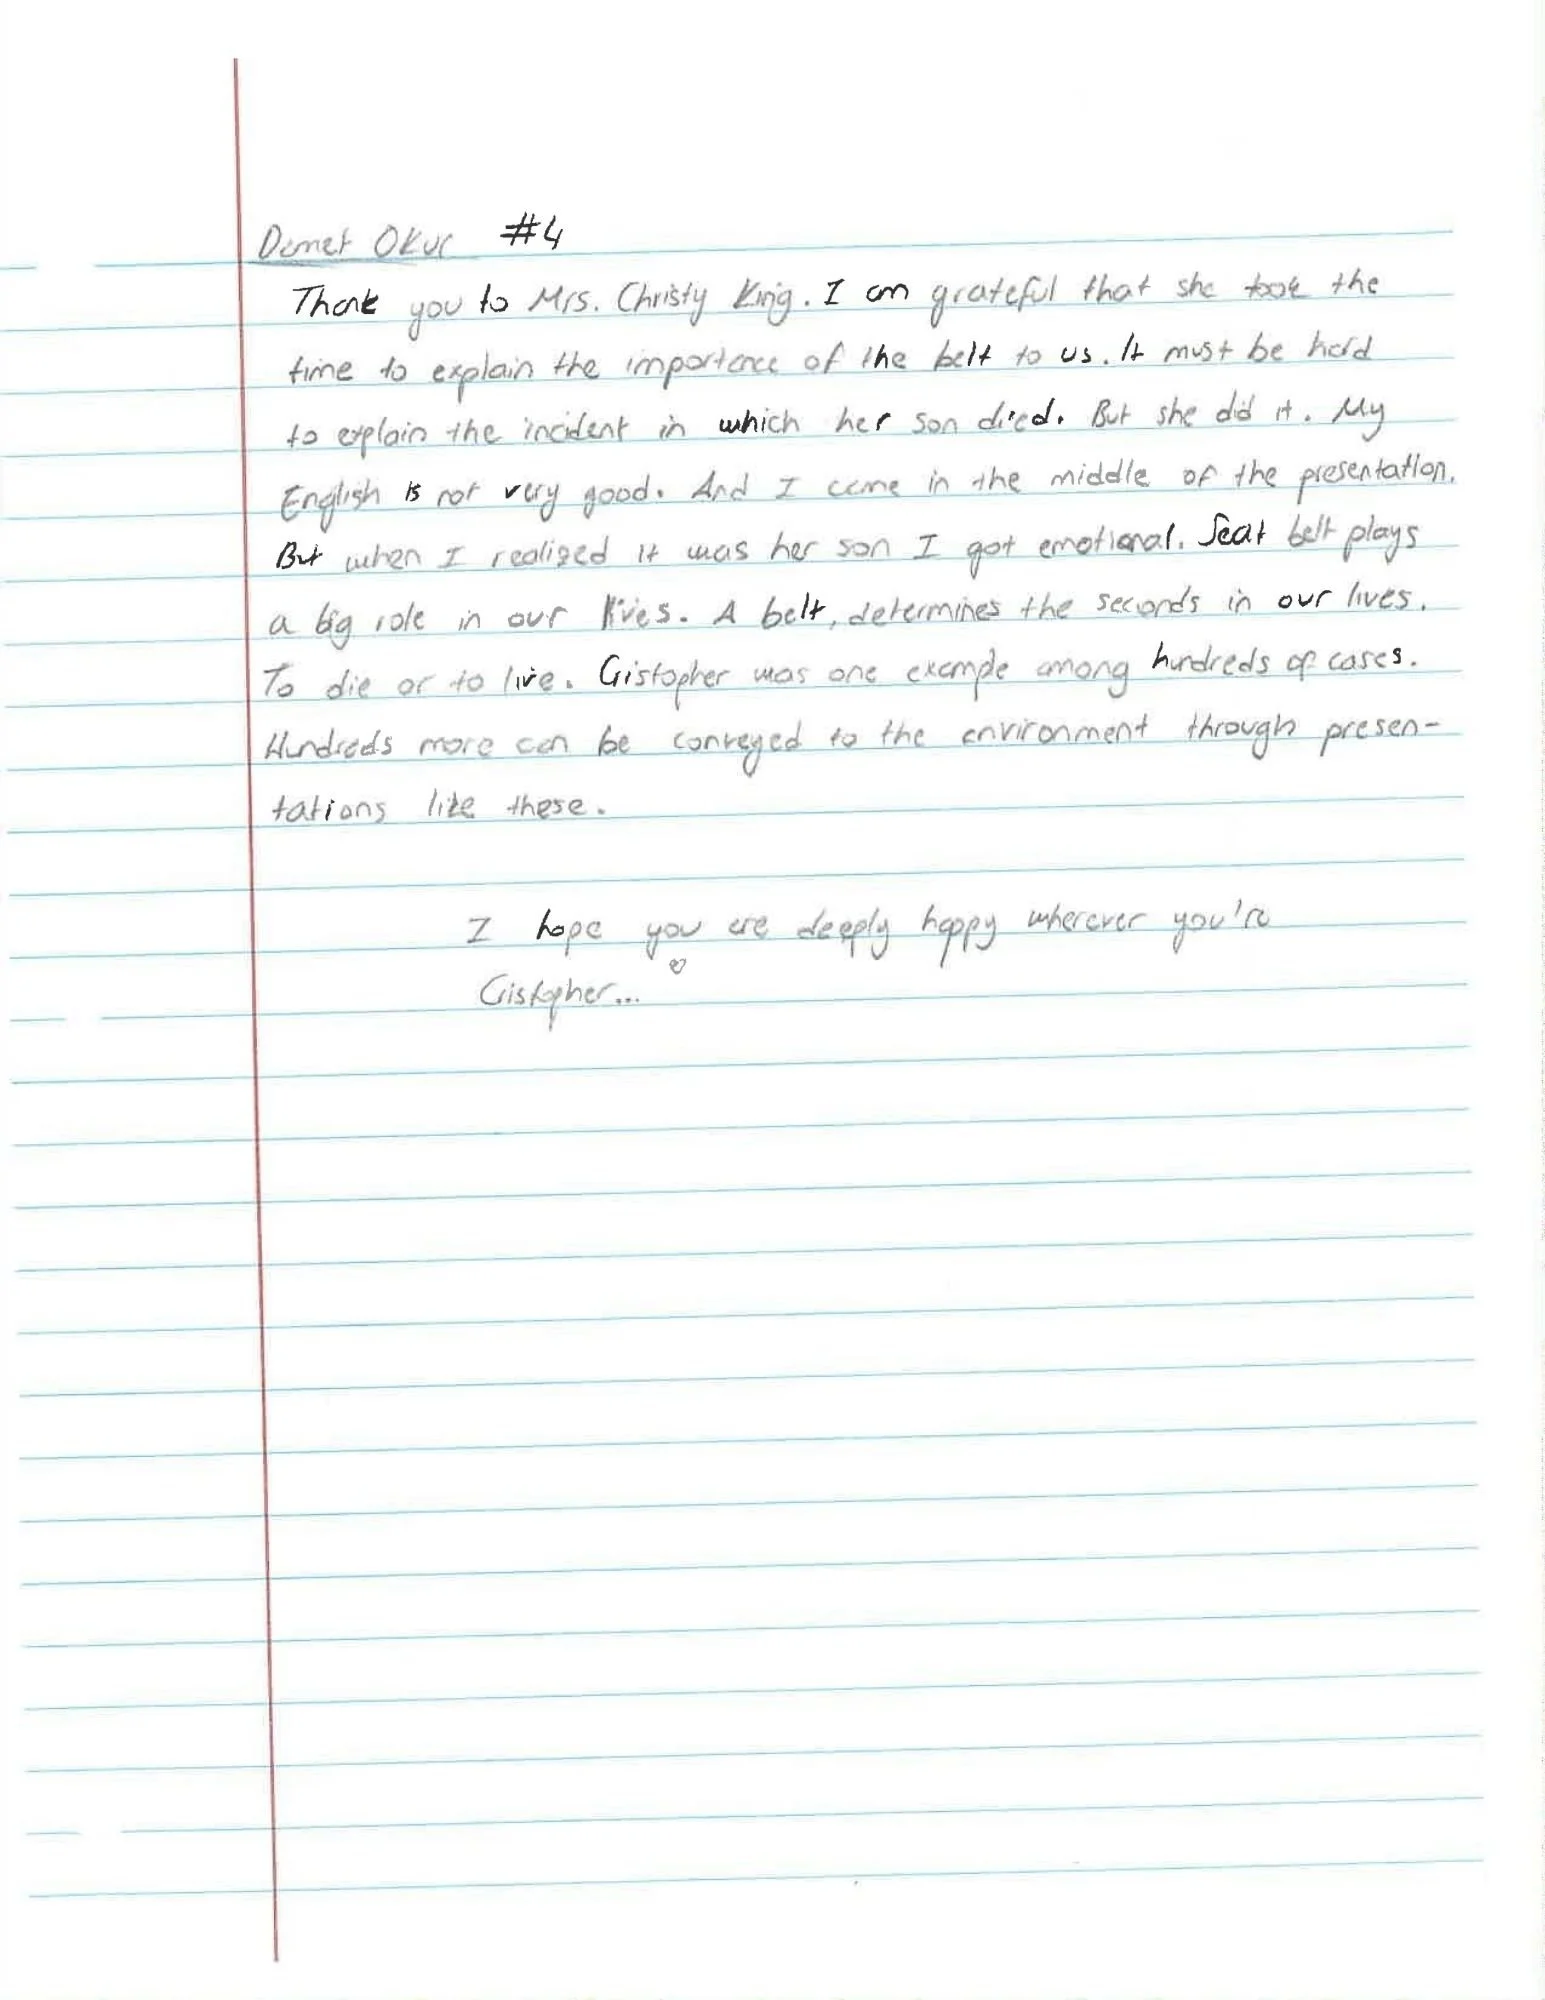 Demet Okur #4
Thank you to Mrs. Christy King. I am grateful that she took the
time to explain the importance of the belt to us. It must be hard
to explain the incident in which her son died. But she did it. My
English is not very good. And I came in the middle of the presentation.
But when I realized it was her son I got emotional. Seat belt plays
a big role in our lives. A belt, determines the seconds in our lives.
To die or to live. Cristopher was one example among hundreds of cases.
Hundreds more can be conveyed to the environment through presen-
tations like these.
I hope you are deeply happy wherever you're
Cristopher...